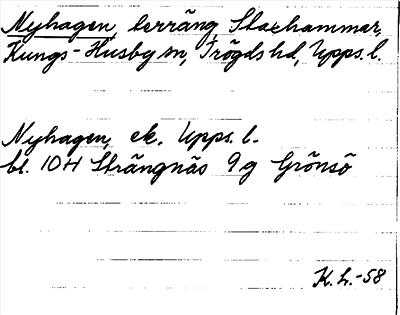 Nyhagen, terräng, Stachammar,
Kungs-Husby sn, Trögds hd, Upps. l.
Nyhagen, ek. Upps. l.
bl. 10H Strängnäs 9g Grönsö
K. L. -58